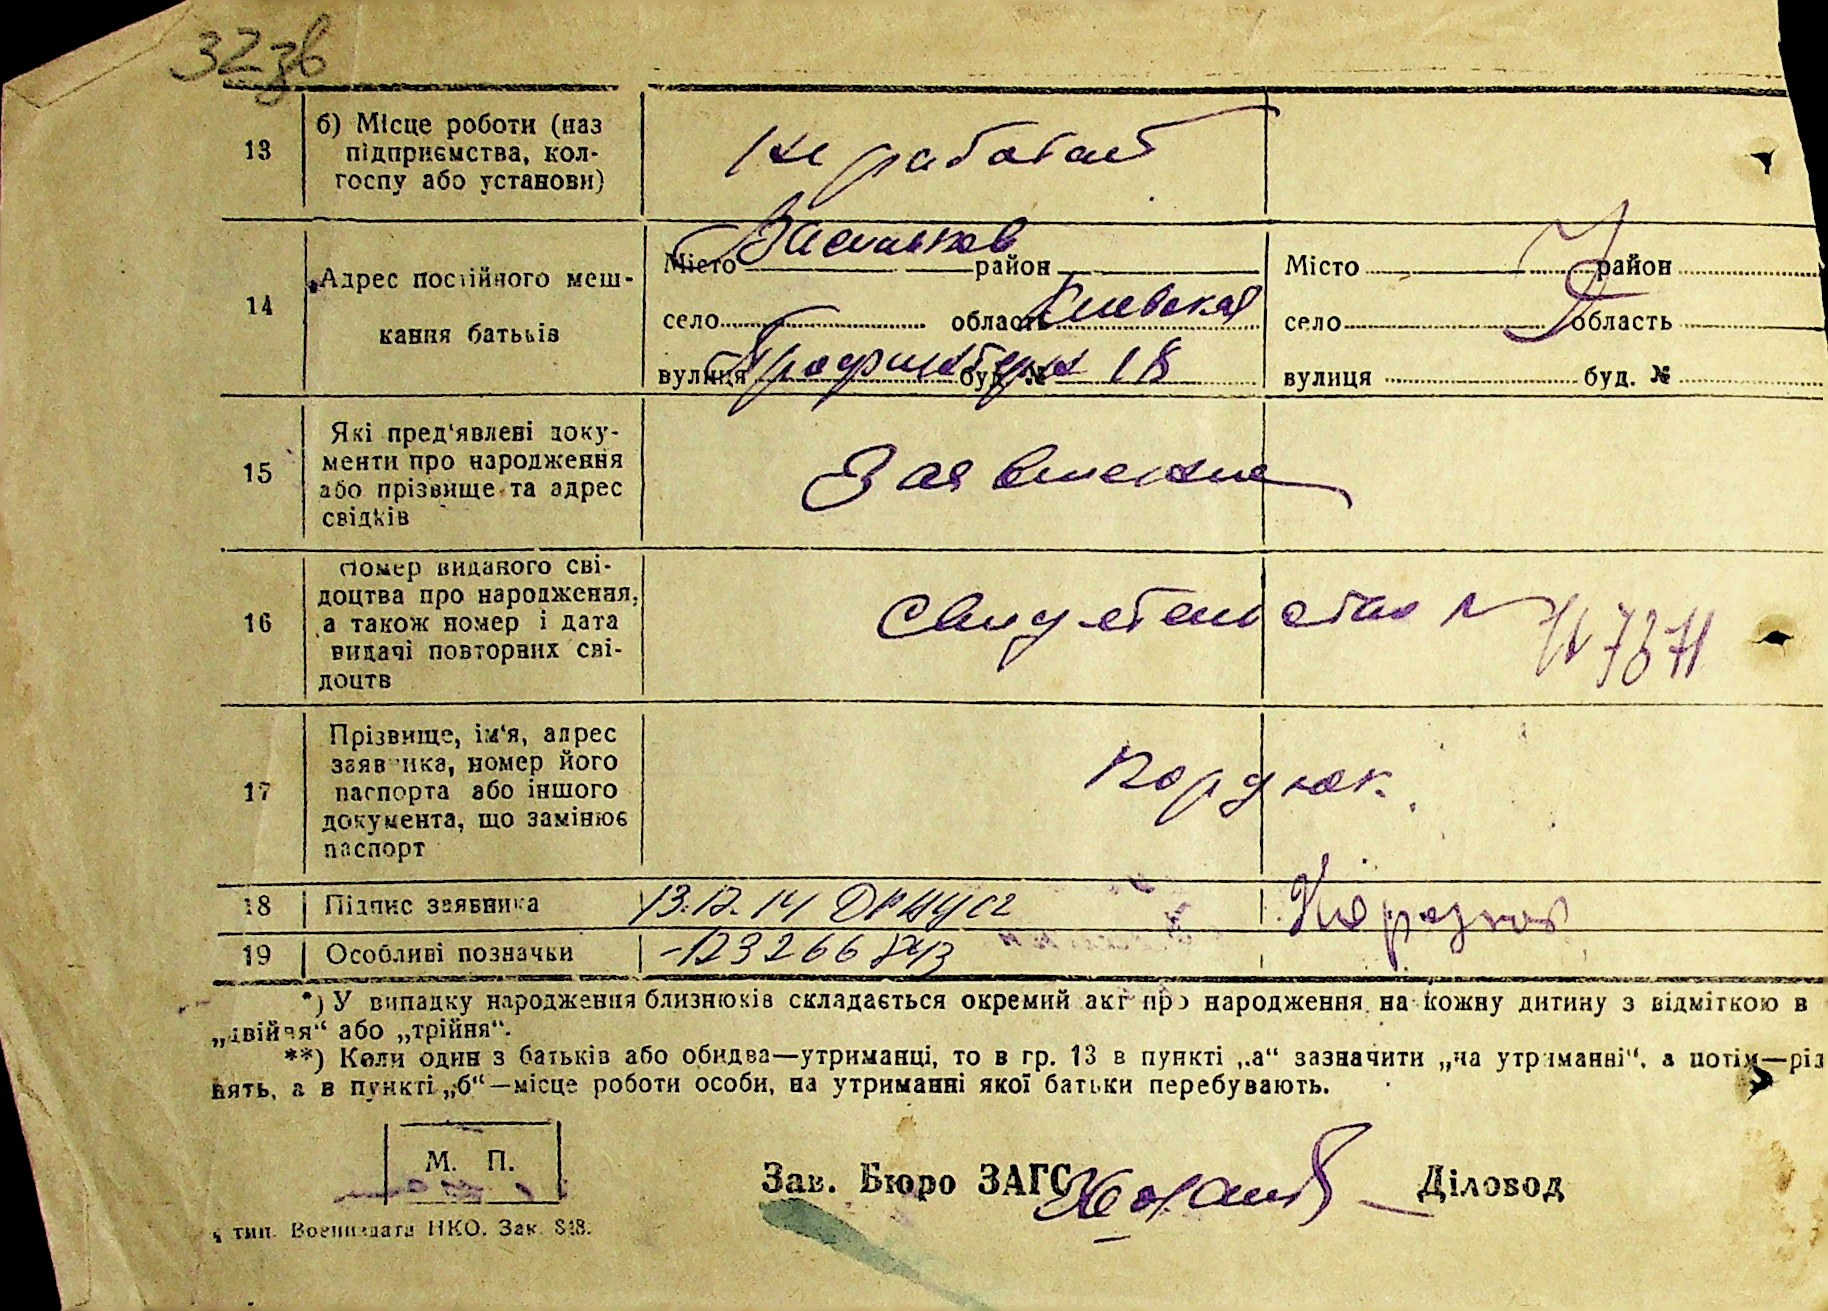 32зв
13
б) Місце роботи (наз
підприємства, кол-
госпу або установи)
не работает
14
Адрес постійного меш-
кання батьків
Місто Васильков район
село область Киевская
вулиця буд. № 18
Місто район
село область
вулиця буд. №
15
Які пред'явлені доку-
менти про народження
або прізвище та адрес
свідків
Заявление
16
Номер виданого сві-
доцтва про народження,
а також номер і дата
видачі повторних сві-
доцтв
Свидетельство №
17
Прізвище, ім'я, адрес
заявника, номер його
паспорта або іншого
документа, що замінює
паспорт
Кордюк.
18 Підпис заявника
19 Особливі позначки
*) У випадку народження близнюків складається окремий акт про народження на кожну дитину з відміткою в
„двійня“ або „трійня“.
**) Коли один з батьків або обидва—утриманці, то в гр. 13 в пункті „а“ зазначити „на утриманні“, а потім—рід
нять, а в пункті „б“—місце роботи особи, на утриманні якої батьки перебувають.
М. П.
Зав. Бюро ЗАГС Діловод
тип. Воениздата НКО. Зак.